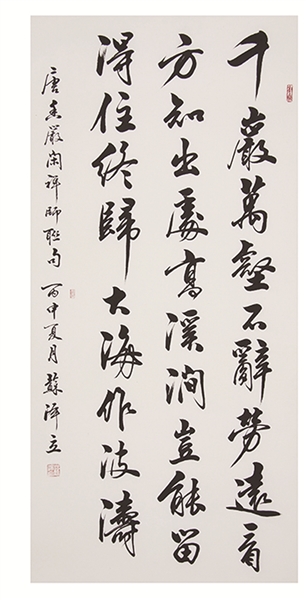 千巖萬壑不辭勞遠看
方知出處高溪澗豈能留
得住終歸大海作波濤
唐香嚴閑禪師聯句 丙申夏月 蘇澤立